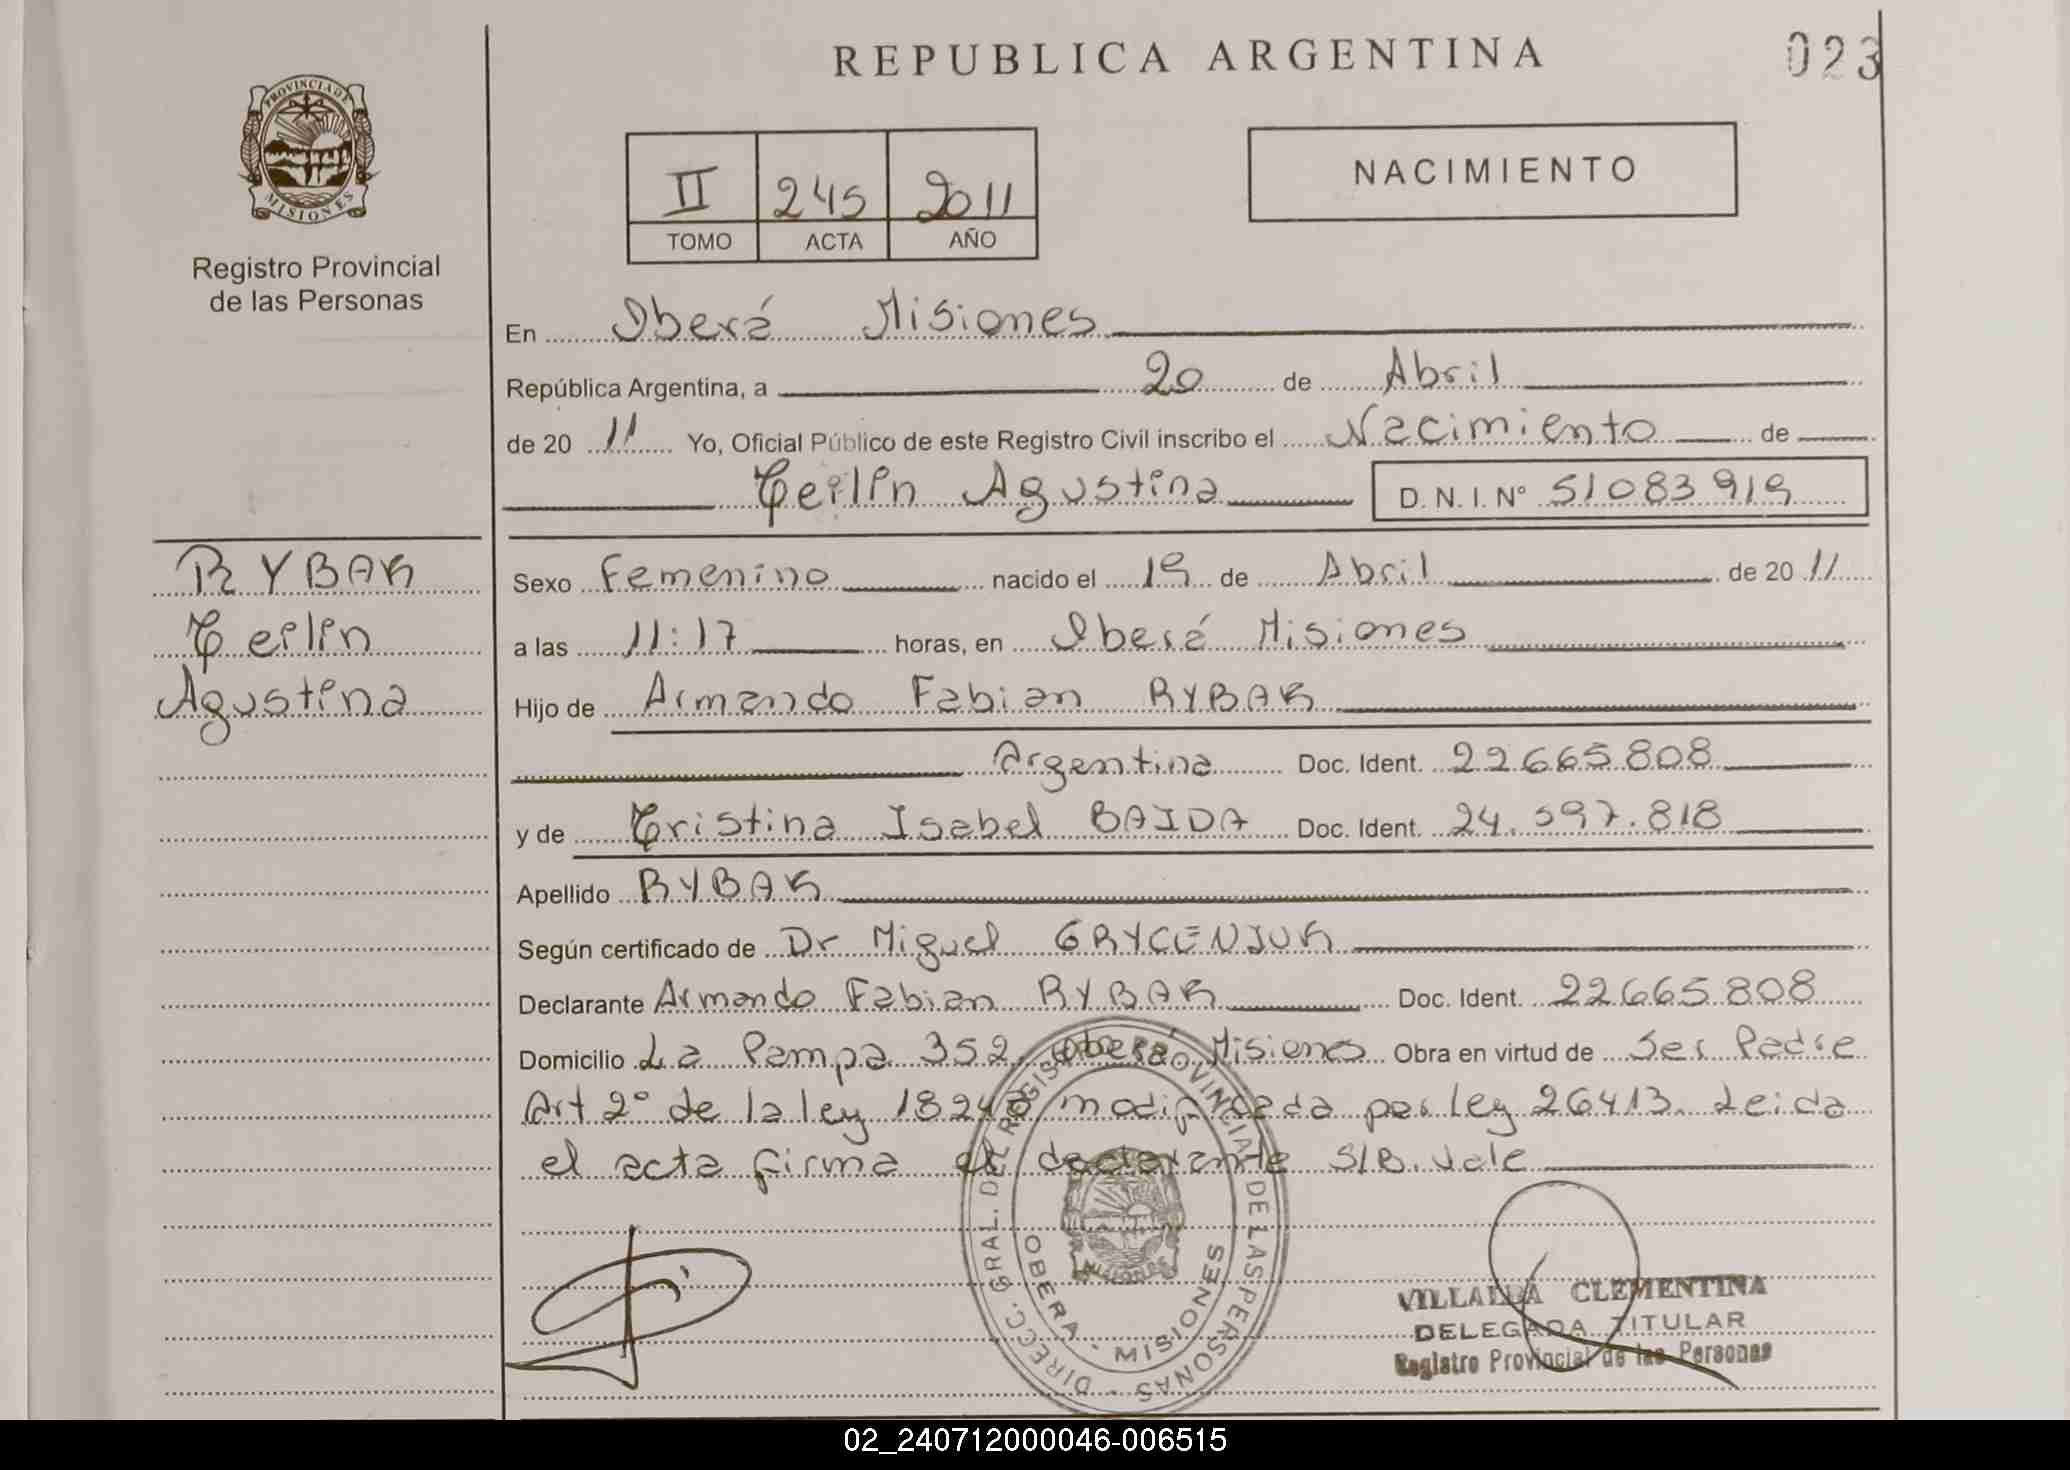 REPUBLICA ARGENTINA
023
PROVINCIA DE
MISIONES
Registro Provincial
de las Personas
II 245 2011
TOMO ACTA AÑO
NACIMIENTO
En Oberá Misiones
República Argentina, a 20 de Abril
de 20 11 Yo, Oficial Público de este Registro Civil inscribo el Nacimiento de
Ceilin Agustina D. N. I. N° 51083919
RYBAK
Ceilin
Agustina
Sexo Femenino nacido el 19 de Abril de 20 11
a las 11:17 horas, en Oberá Misiones
Hijo de Armando Fabian RYBAK
Argentina Doc. Ident. 22665808
y de Cristina Isabel BAIDA Doc. Ident. 24.597.818
Apellido RYBAK
Según certificado de Dr Miguel GRYCENJUK
Declarante Armando Fabian RYBAK Doc. Ident. 22665808
Domicilio La Pampa 352 Oberá Misiones Obra en virtud de Ser Padre
Art 2° de la ley 18248 modificada por ley 26413. Leida
el acta firma el declarante S/B. Vale
DIRECC. GRAL. DEL REGISTRO PROVINCIAL DE LAS PERSONAS
OBERA - MISIONES
MISIONES
VILLALBA CLEMENTINA
DELEGADA TITULAR
Registro Provincial de las Personas
02_240712000046-006515